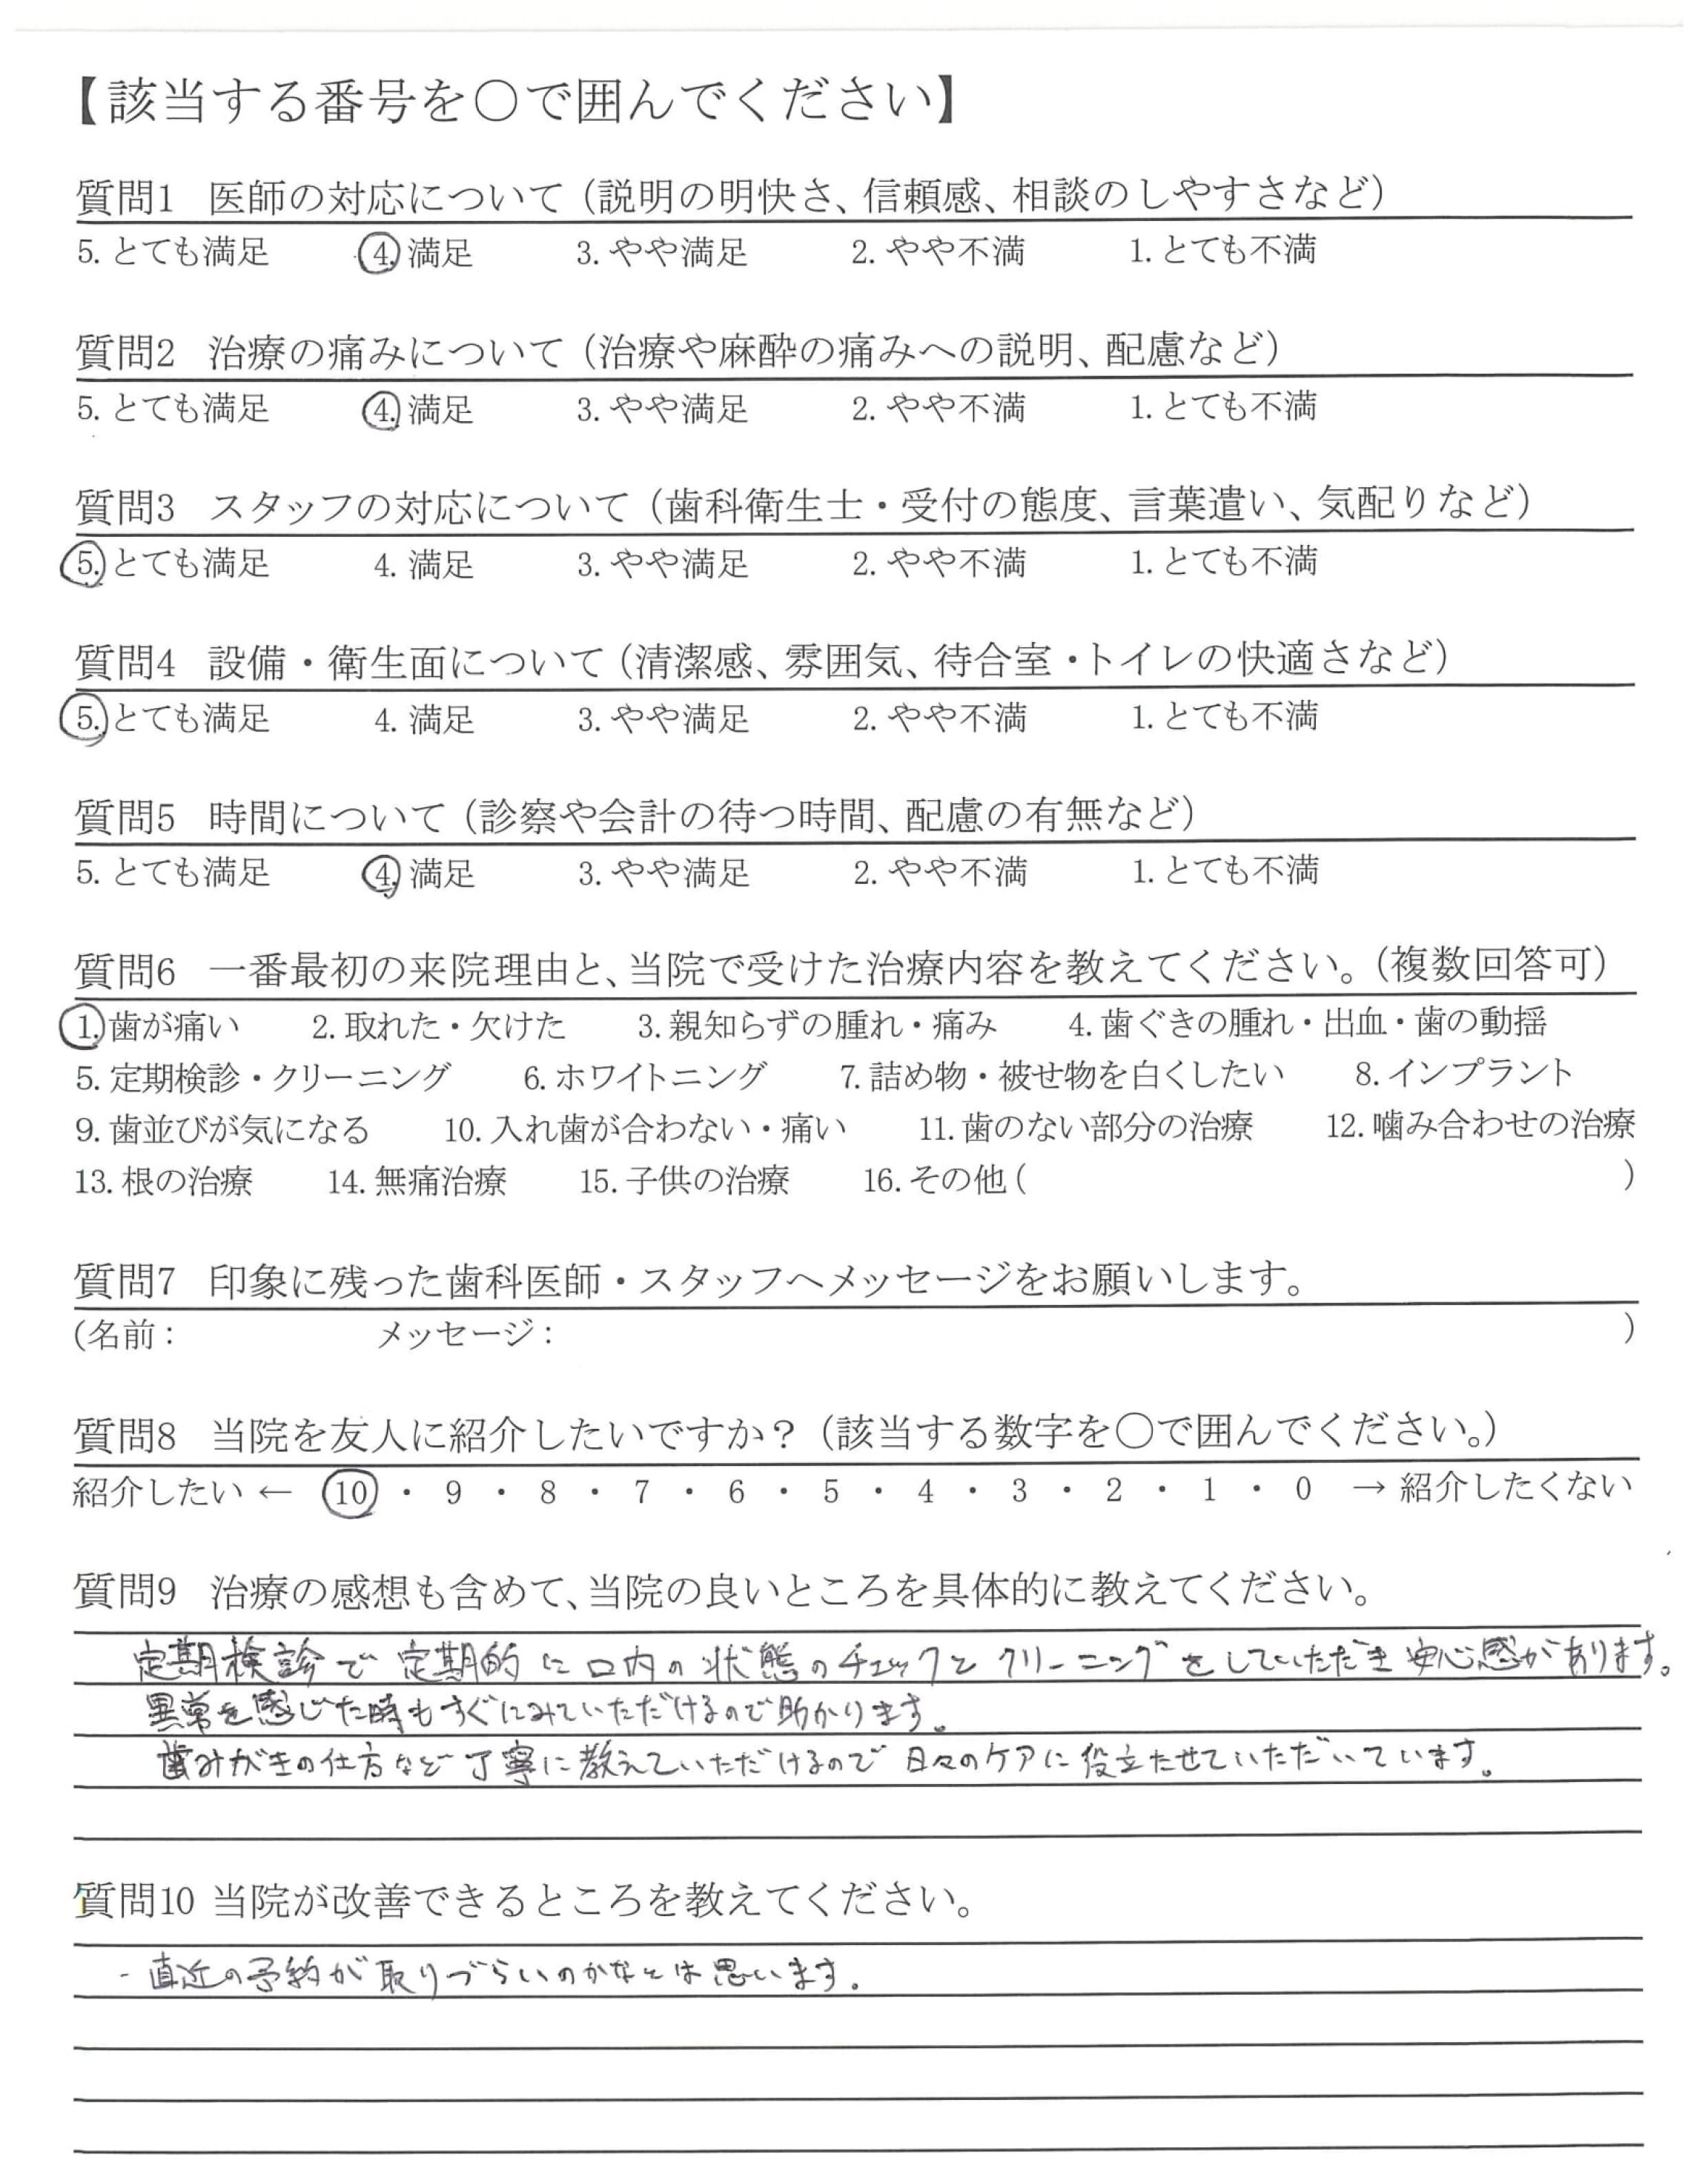 【該当する番号を〇で囲んでください】
質問1 医師の対応について（説明の明快さ、信頼感、相談のしやすさなど）
5. とても満足 4. 満足 3. やや満足 2. やや不満 1. とても不満
質問2 治療の痛みについて（治療や麻酔の痛みへの説明、配慮など）
5. とても満足 4. 満足 3. やや満足 2. やや不満 1. とても不満
質問3 スタッフの対応について（歯科衛生士・受付の態度、言葉遣い、気配りなど）
5. とても満足 4. 満足 3. やや満足 2. やや不満 1. とても不満
質問4 設備・衛生面について（清潔感、雰囲気、待合室・トイレの快適さなど）
5. とても満足 4. 満足 3. やや満足 2. やや不満 1. とても不満
質問5 時間について（診察や会計の待つ時間、配慮の有無など）
5. とても満足 4. 満足 3. やや満足 2. やや不満 1. とても不満
質問6 一番最初の来院理由と、当院で受けた治療内容を教えてください。（複数回答可）
1. 歯が痛い 2. 取れた・欠けた 3. 親知らずの腫れ・痛み 4. 歯ぐきの腫れ・出血・歯の動揺
5. 定期検診・クリーニング 6. ホワイトニング 7. 詰め物・被せ物を白くしたい 8. インプラント
9. 歯並びが気になる 10. 入れ歯が合わない・痛い 11. 歯のない部分の治療 12. 噛み合わせの治療
13. 根の治療 14. 無痛治療 15. 子供の治療 16. その他（ ）
質問7 印象に残った歯科医師・スタッフへメッセージをお願いします。
（名前： メッセージ： ）
質問8 当院を友人に紹介したいですか？（該当する数字を〇で囲んでください。）
紹介したい ← 10 ・ 9 ・ 8 ・ 7 ・ 6 ・ 5 ・ 4 ・ 3 ・ 2 ・ 1 ・ 0 → 紹介したくない
質問9 治療の感想も含めて、当院の良いところを具体的に教えてください。
定期検診で定期的に口内の状態のチェックとクリーニングをしていただき安心感があります。
異常を感じた時もすぐにみていただけるので助かります。
歯みがきの仕方など丁寧に教えていただけるので日々のケアに役立たせていただいています。
質問10 当院が改善できるところを教えてください。
・直近の予約が取りづらいのかなとは思います。